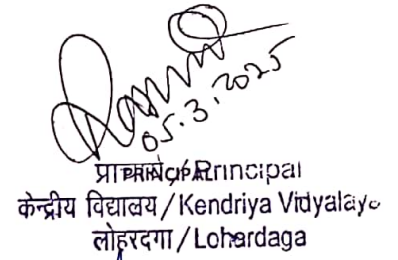 05.3.2025
प्राचार्य/Principal
केन्द्रीय विद्यालय/Kendriya Vidyalaya
लोहरदगा/Lohardaga